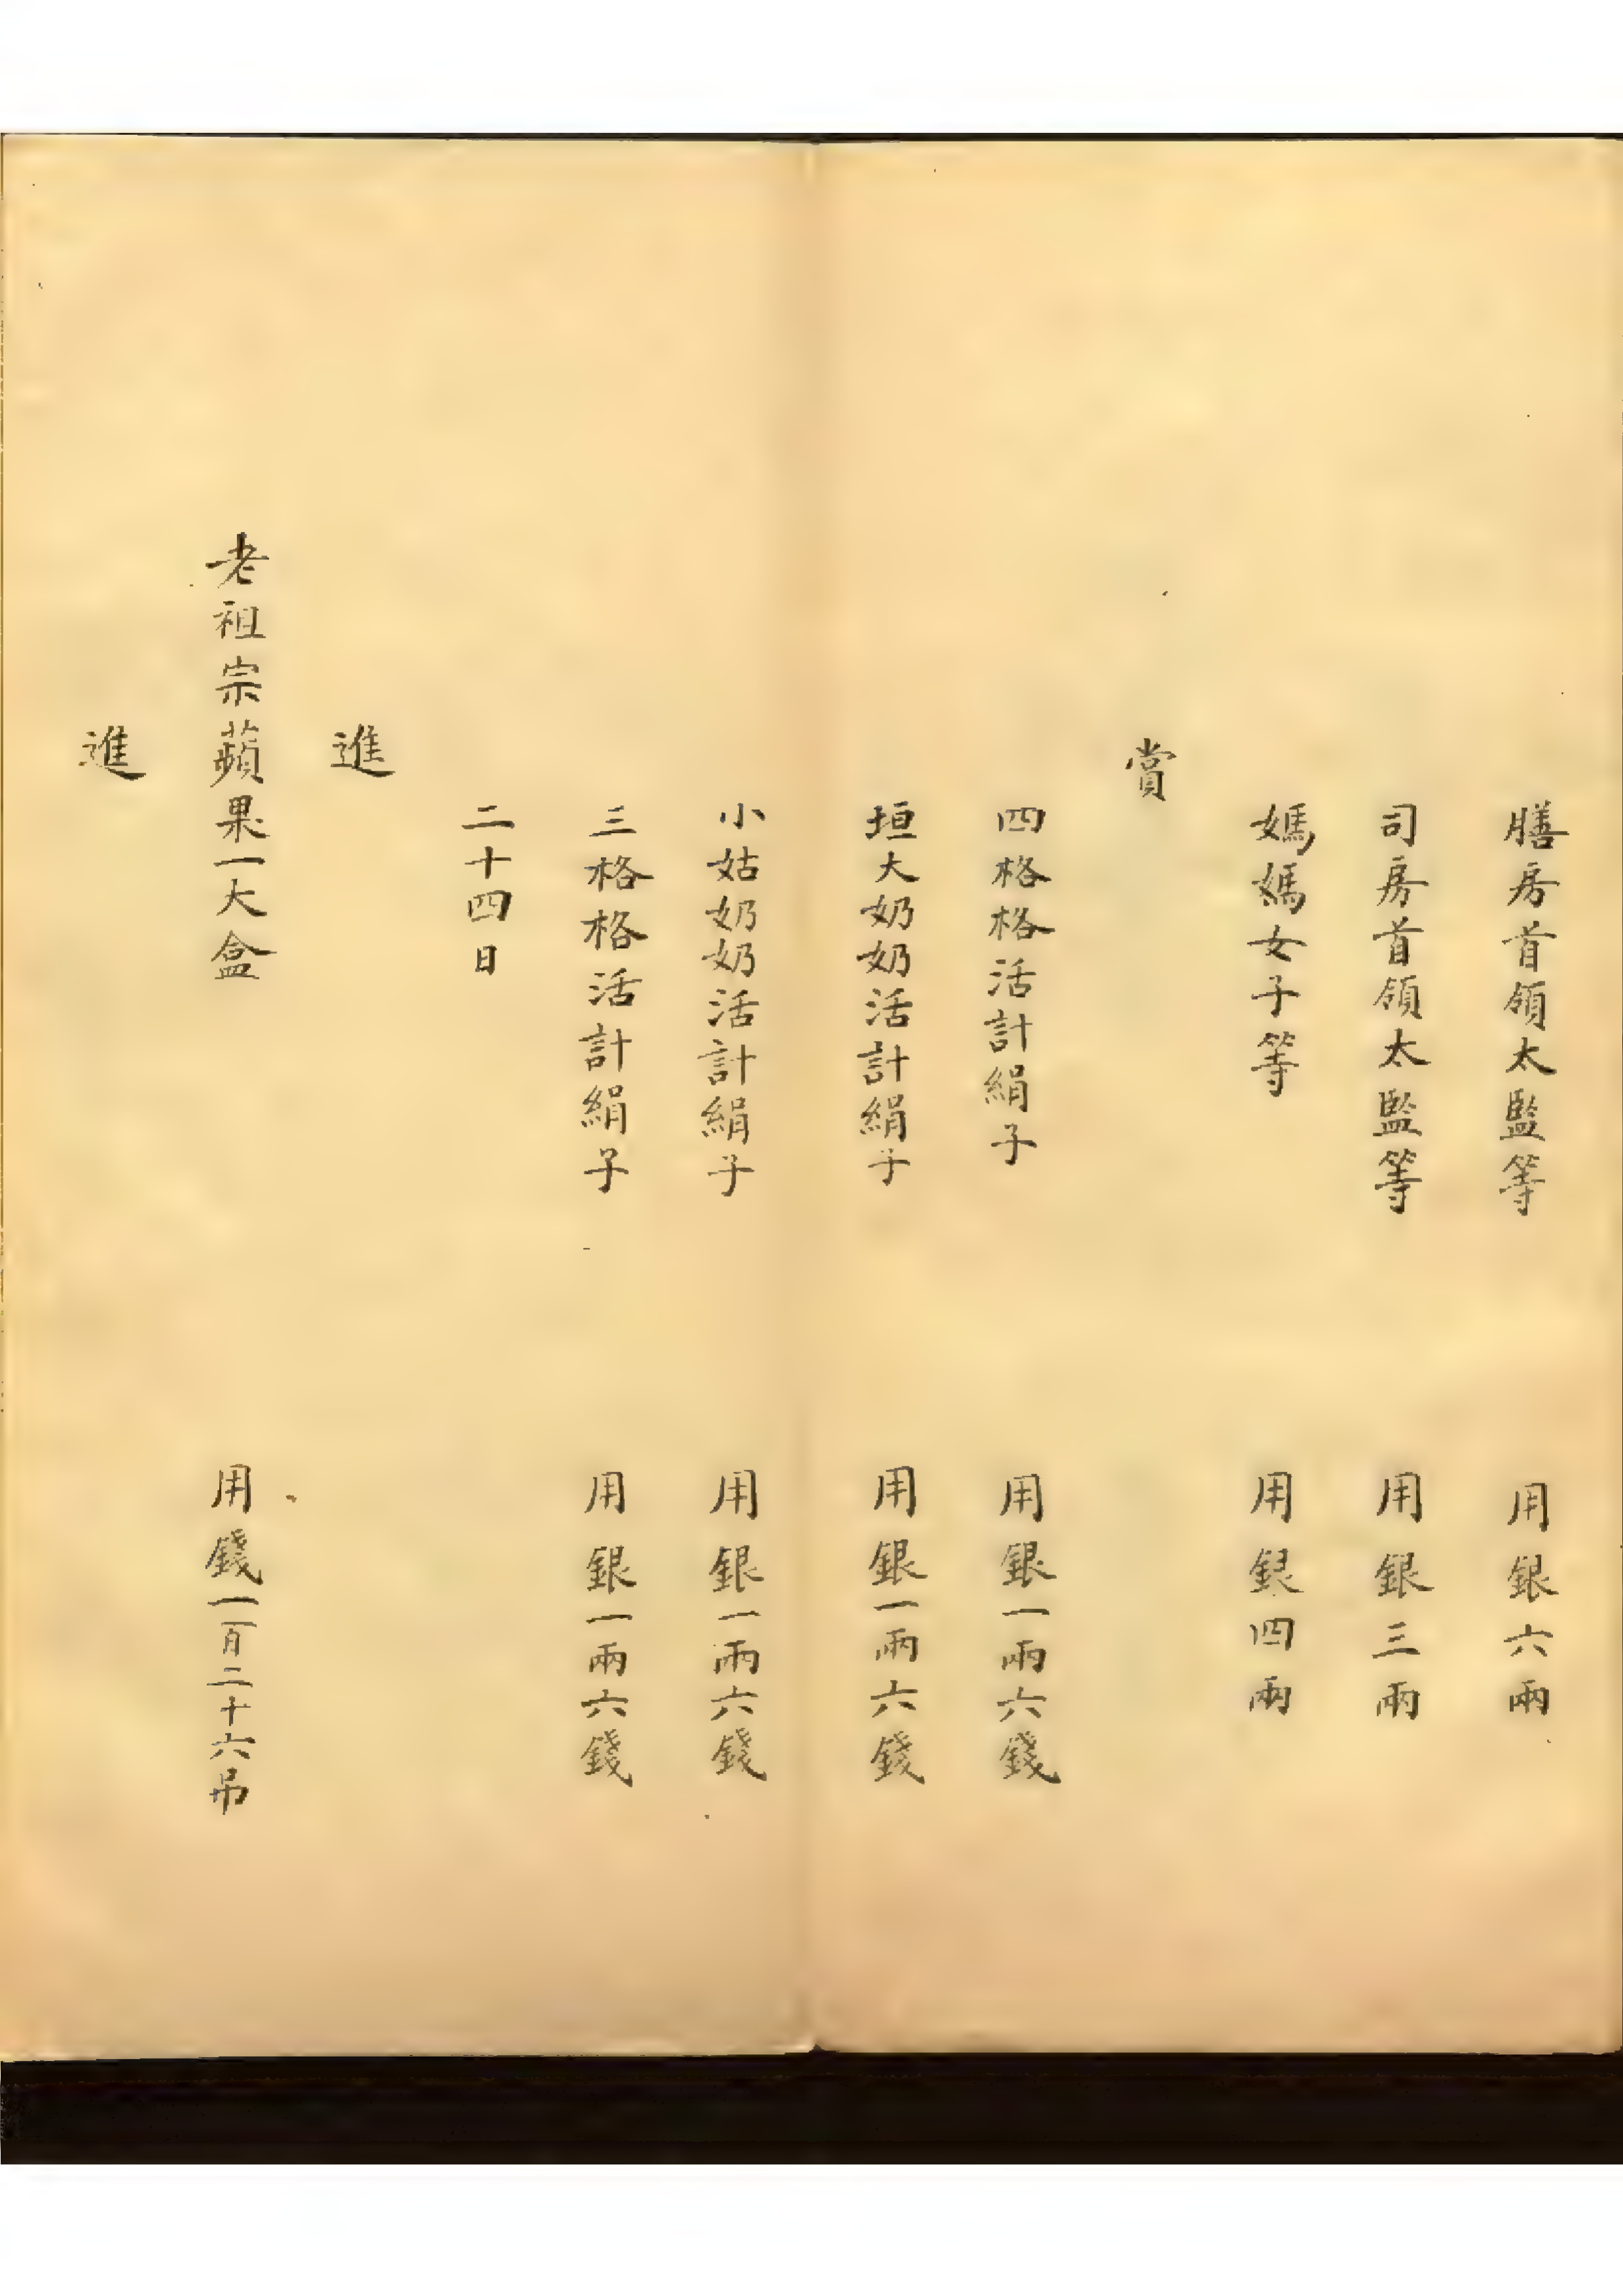 膳房首領太監等　用銀六兩
司房首領太監等　用銀三兩
媽媽女子等　用銀四兩
賞
四格格活計絹子　用銀一兩六錢
垣大奶奶活計絹子　用銀一兩六錢
小姑奶奶活計絹子　用銀一兩六錢
三格格活計絹子　用銀一兩六錢
二十四日
進
老祖宗蘋果一大盒　用錢一百二十六吊
進